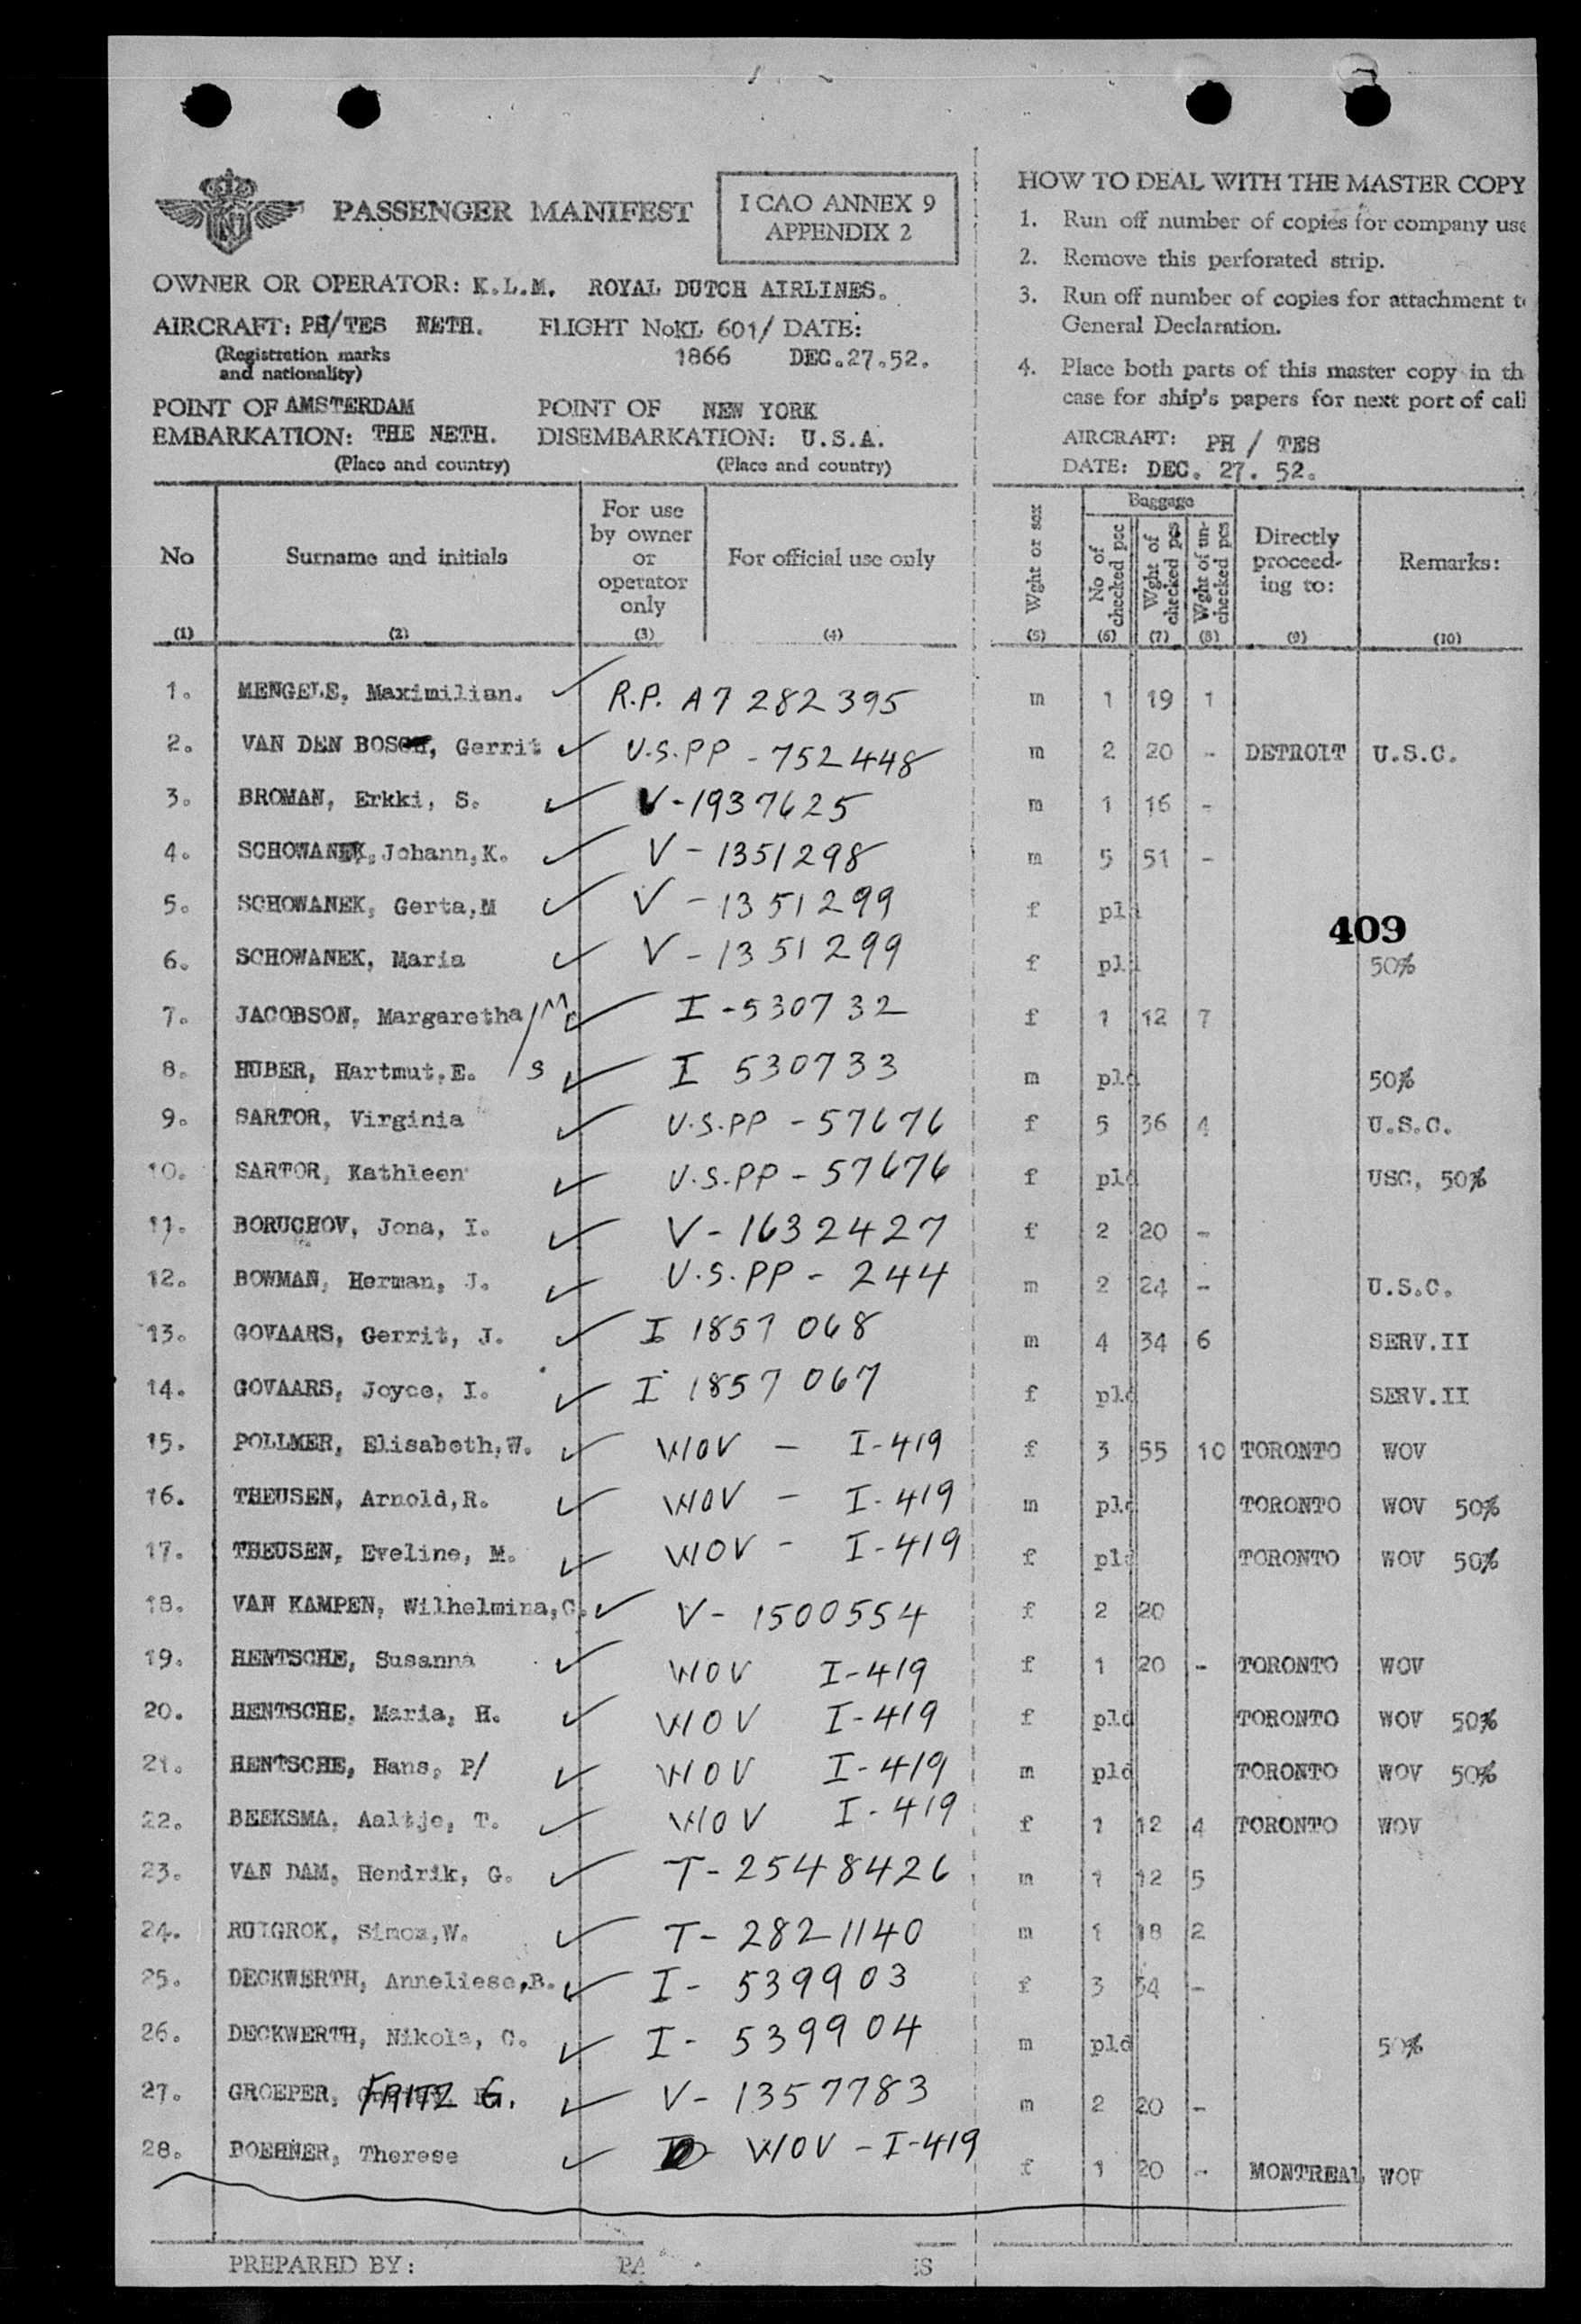 PASSENGER MANIFEST
I CAO ANNEX 9
APPENDIX 2
OWNER OR OPERATOR: K.L.M. ROYAL DUTCH AIRLINES.
AIRCRAFT: PH/TES NETH. FLIGHT NoKL 601/ DATE:
(Registration marks and nationality) 1866 DEC.27.52.
POINT OF AMSTERDAM POINT OF NEW YORK
EMBARKATION: THE NETH. DISEMBARKATION: U.S.A.
(Place and country) (Place and country)
HOW TO DEAL WITH THE MASTER COPY
1. Run off number of copies for company use
2. Remove this perforated strip.
3. Run off number of copies for attachment t
General Declaration.
4. Place both parts of this master copy in th
case for ship's papers for next port of call
AIRCRAFT: PH / TES
DATE: DEC. 27. 52.
No Surname and initials For use by owner or operator only For official use only Wght or sex Baggage No of checked pcc Wght of checked pcs Wght of un-checked pcs Directly proceed-ing to: Remarks:
(1) (2) (3) (4) (5) (6) (7) (8) (9) (10)
1. MENGELS, Maximilian. R.P. A7 282395 m 1 19 1
2. VAN DEN BOSCH, Gerrit U.S.PP - 752448 m 2 20 - DETROIT U.S.C.
3. BROMAN, Erkki, S. V-1937625 m 1 16 -
4. SCHOWANEK, Johann,K. V - 1351298 m 5 51 -
5. SCHOWANEK, Gerta,M V - 1351299 f pld
409
6. SCHOWANEK, Maria V - 1351299 f pld 50%
7. JACOBSON, Margaretha /M I -530732 f 1 12 7
8. HUBER, Hartmut,E. / S I 530733 m pld 50%
9. SARTOR, Virginia U.S.PP - 57676 f 5 36 4 U.S.C.
10. SARTOR, Kathleen U.S.PP - 57676 f pld USC, 50%
11. BORUCHOV, Jona, I. V - 1632427 f 2 20 -
12. BOWMAN, Herman, J. U.S.PP - 244 m 2 24 - U.S.C.
13. GOVAARS, Gerrit, J. I 1857 068 m 4 34 6 SERV.II
14. GOVAARS, Joyce, I. I 1857 067 f pld SERV.II
15. POLLMER, Elisabeth,W. WOV - I-419 f 3 55 10 TORONTO WOV
16. THEUSEN, Arnold,R. WOV - I-419 m pld TORONTO WOV 50%
17. THEUSEN, Eveline, M. WOV - I-419 f pld TORONTO WOV 50%
18. VAN KAMPEN, Wilhelmina,C. V - 1500554 f 2 20
19. HENTSCHE, Susanna WOV I-419 f 1 20 - TORONTO WOV
20. HENTSCHE, Maria, H. WOV I-419 f pld TORONTO WOV 50%
21. HENTSCHE, Hans, P/ WOV I-419 m pld TORONTO WOV 50%
22. BEEKSMA, Aaltje, T. WOV I-419 f 1 12 4 TORONTO WOV
23. VAN DAM, Hendrik, G. T-2548426 m 1 12 5
24. RUIGROK, Simon,W. T- 2821140 m 1 18 2
25. DECKWERTH, Anneliese,B. I- 539903 f 3 34 -
26. DECKWERTH, Nikola, C. I- 539904 m pld 50%
27. GROEPER, FRITZ G. V- 1357783 m 2 20 -
28. BOEHNER, Therese WOV - I-419 f 1 20 - MONTREAL WOV
PREPARED BY: PA S